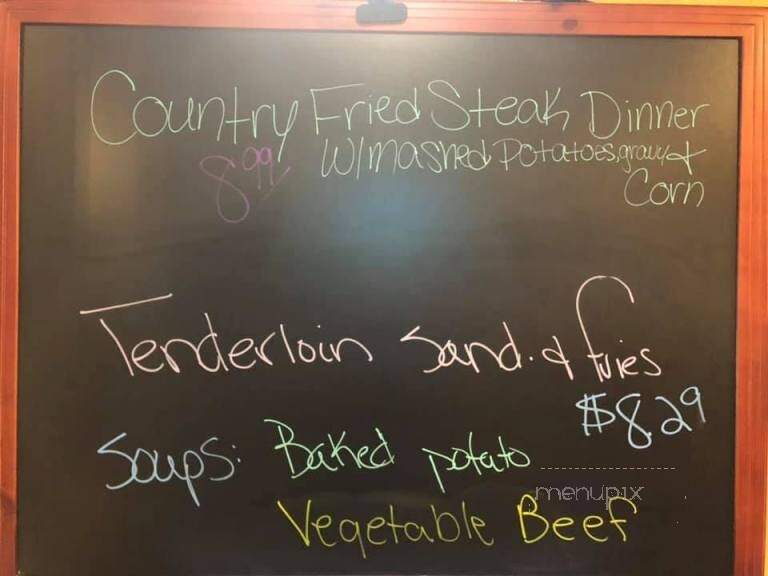 Country Fried Steak Dinner
8.99 w/mashed potatoes, gravy &
Corn
Tenderloin Sand. & fries
$8.29
Soups: Baked potato
menupix
Vegetable Beef